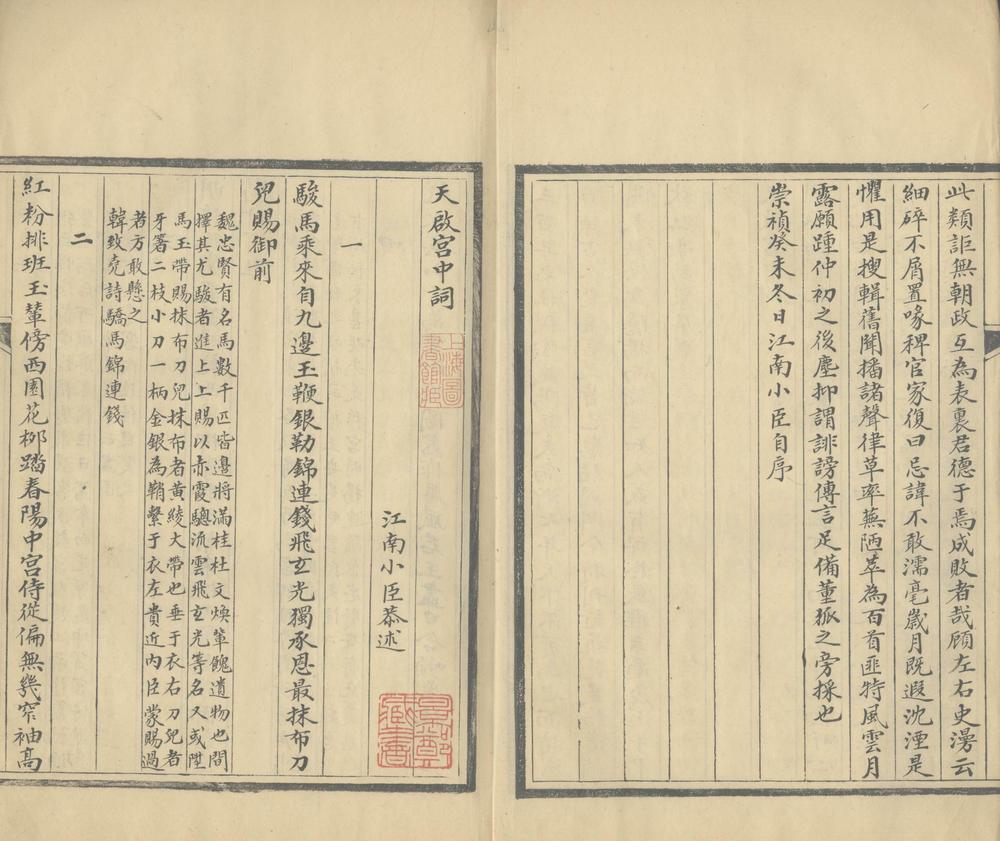 此類詎無朝政互為表裏君德于焉成敗者哉顧左右史漫云
細碎不屑置喙稗官家復曰忌諱不敢濡毫歲月既遐沈湮是
懼用是搜輯舊聞播諸聲律草率蕪陋萃為百首匪特風雲月
露願踵仲初之後塵抑謂誹謗傳言足備董狐之旁採也
崇禎癸未冬日江南小臣自序
天啟宮中詞
上海圖書館藏
江南小臣恭述
一
駿馬乘來自九邊玉鞭銀勒錦連錢飛玄光獨承恩最抹布刀
兒賜御前
魏忠賢有名馬數千匹皆邊將滿桂杜文煥輩餽遺物也間
擇其尤駿者進上上賜以赤霞驄流雲飛玄光等名又或陞
馬玉帶賜抹布刀兒抹布者黃綾大帶也垂于衣右刀兒者
牙筯二枝小刀一柄金銀為鞘繫于衣左貴近內臣蒙賜過
者方敢懸之
韓致堯詩驕馬錦連錢
二
紅粉排班玉輦傍西園花栁踏春陽中宮侍從偏無幾窄袖高